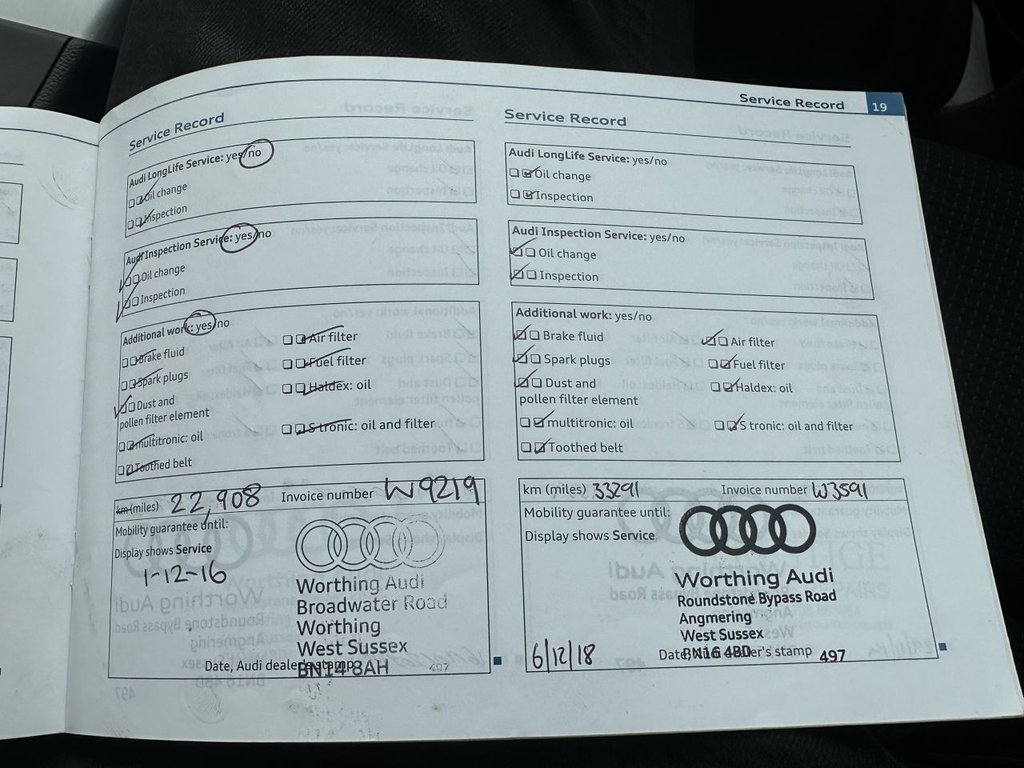 Service Record 19
Service Record
Audi LongLife Service: yes/no
Oil change
Inspection
Audi Inspection Service: yes/no
Oil change
Inspection
Additional work: yes/no
Brake fluid
Air filter
Spark plugs
Fuel filter
Dust and
pollen filter element
Haldex: oil
multitronic: oil
S tronic: oil and filter
Toothed belt
km (miles) 22,908 Invoice number W9219
Mobility guarantee until:
Display shows Service
1-12-16
Worthing Audi
Broadwater Road
Worthing
West Sussex
BN14 8AH
Date, Audi dealer's stamp
497
Service Record
Audi LongLife Service: yes/no
Oil change
Inspection
Audi Inspection Service: yes/no
Oil change
Inspection
Additional work: yes/no
Brake fluid
Air filter
Spark plugs
Fuel filter
Dust and
pollen filter element
Haldex: oil
multitronic: oil
S tronic: oil and filter
Toothed belt
km (miles) 33291 Invoice number W3591
Mobility guarantee until:
Display shows Service
Worthing Audi
Roundstone Bypass Road
Angmering
West Sussex
BN16 4BD
6/12/18
Date, Audi dealer's stamp
497